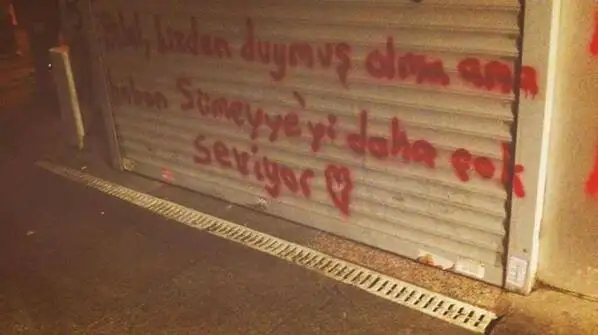 Bilal, bizden duymuş olma ama
baban Sümeyye'yi daha çok
seviyor ♡